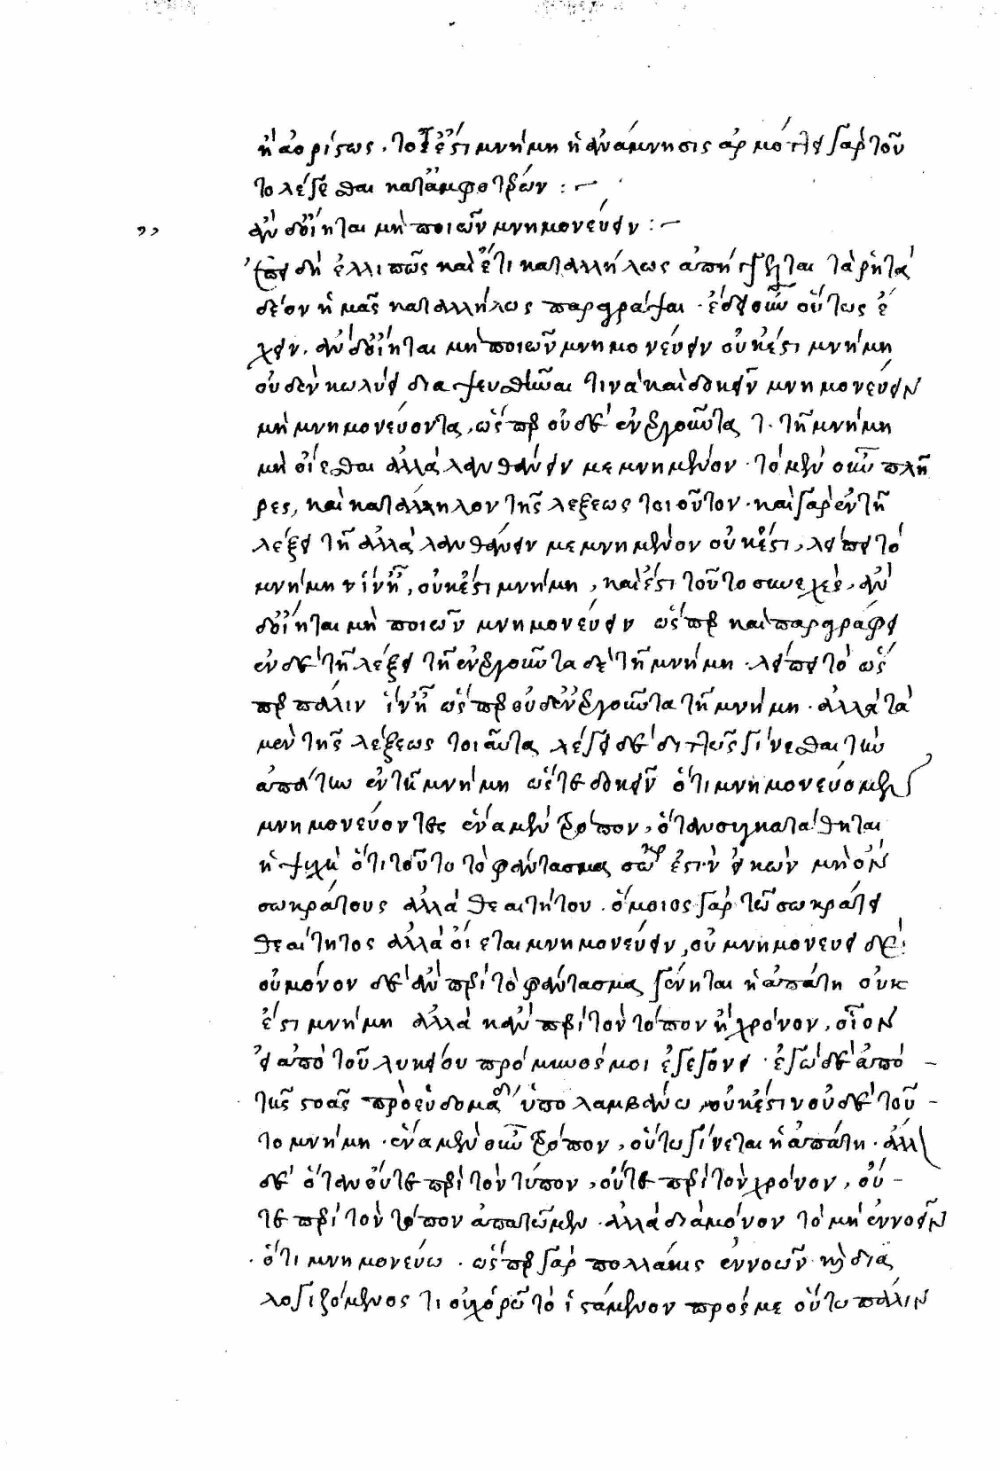 ἢ ἀορίστως. τότε ἐστὶ μνήμη ἢ ἀνάμνησις ἁρμόττει γὰρ τοῦ
το λέγεσθαι κατ' ἀμφοτέρων :–
ἂν δ' οἴηται μὴ ποιῶν μνημονεύειν :–
ἐπειδὴ ἐλλιπῶς καὶ ἔτι καταλλήλως ἀπήγγελται τὰ ῥητὰ
δέον ἡμᾶς καταλλήλως παραγράψαι. ἔδει οὖν οὕτως ἔ
χειν. ἂν δ' οἴηται μὴ ποιῶν μνημονεύειν οὐκ ἔστι μνήμη
οὐδὲν κωλύει διαψευσθῆναι τινὰ καὶ δοκεῖν μνημονεύειν
μὴ μνημονεύοντα, ὥσπερ οὐδ' ἐνεργοῦντα τῇ μνήμῃ
μὴ οἴεσθαι ἀλλὰ λανθάνειν μεμνημένον. τὸ μὲν οὖν πλῆ
ρες, καὶ κατάλληλον τῆς λέξεως τοιοῦτον. καὶ γὰρ ἐν τῇ
λέξει τῇ ἀλλὰ λανθάνειν μεμνημένον οὐκ ἔστι, λείπει τὸ
μνήμη ἵν' ᾖ, οὐκ ἔστι μνήμη, καὶ ἔστι τοῦτο συνεχὲς, ἂν
δ' οἴηται μὴ ποιῶν μνημονεύειν ὥσπερ καὶ παραγράφει
ἐν δὲ τῇ λέξει τῇ ἐνεργοῦντα δὲ τῇ μνήμῃ. λείπει τὸ ὥσ
περ πάλιν ἵν' ᾖ ὥσπερ οὐδ' ἐνεργοῦντα τῇ μνήμῃ. ἀλλὰ τὰ
μὲν τῆς λέξεως τοιαῦτα, λέγει δὲ διττῶς γίνεσθαι τὴν
ἀπάτην ἐν τῇ μνήμῃ ὥστε δοκεῖν ὅτι μνημονεύομεν
μνημονεύοντες ἕνα μὲν τρόπον, ὅταν συγκατάθηται
ἡ ψυχὴ ὅτι τοῦτο τὸ φάντασμα σωκρ ἐστὶν εἰκὼν μὴ ὂν
σωκράτους ἀλλὰ θεαιτήτου. ὅμοιος γὰρ τῷ σωκράτει
θεαίτητος ἀλλὰ οἴεται μνημονεύειν, οὐ μνημονεύει δέ.
οὐ μόνον δὲ ἂν περὶ τὸ φάντασμα γένηται ἡ ἀπάτη οὐκ
ἔστι μνήμη ἀλλὰ κἂν περὶ τὸν τόπον ἢ χρόνον, οἷον
εἰ ἀπὸ τοῦ λυκείου πρὸ μηνός μοι ἐγεγόνει. ἐγὼ δὲ ἀπὸ
τῆς στοᾶς πρὸ ἑβδομάδ ὑπολαμβάνω, οὐκ ἔστιν οὐδὲ τοῦ
το μνήμη. ἕνα μὲν οὖν τρόπον, οὕτω γίνεται ἡ ἀπάτη. ἄλλ
δὲ ὅταν οὔτε περὶ τὸν τύπον, οὔτε περὶ τὸν χρόνον, οὔ
τε περὶ τὸν τόπον ἀπατῶμεν. ἀλλὰ διὰ μόνον τὸ μὴ ἐννοεῖν
ὅτι μνημονεύω. ὥσπερ γὰρ πολλάκις ἐννοῶν καὶ δια
λογιζόμενος τι οὐχ ὁρῶ τὸ ἱστάμενον πρός με οὕτω πάλιν